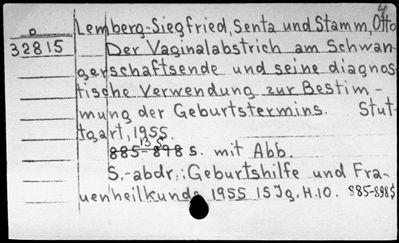 4
o Lemberg-Siegfried, Senta und Stamm, Otto
32815 Der Vaginalabstrich am Schwan-
gerschaftsende und seine diagnos-
tische Verwendung zur Bestim-
mung der Geburtstermins. Stut-
tgart, 1955.
13
885-898 s. mit Abb.
S.-abdr.: Geburtshilfe und Frau-
enheilkunde 1955 15 Jg. H.10. 885-898 S